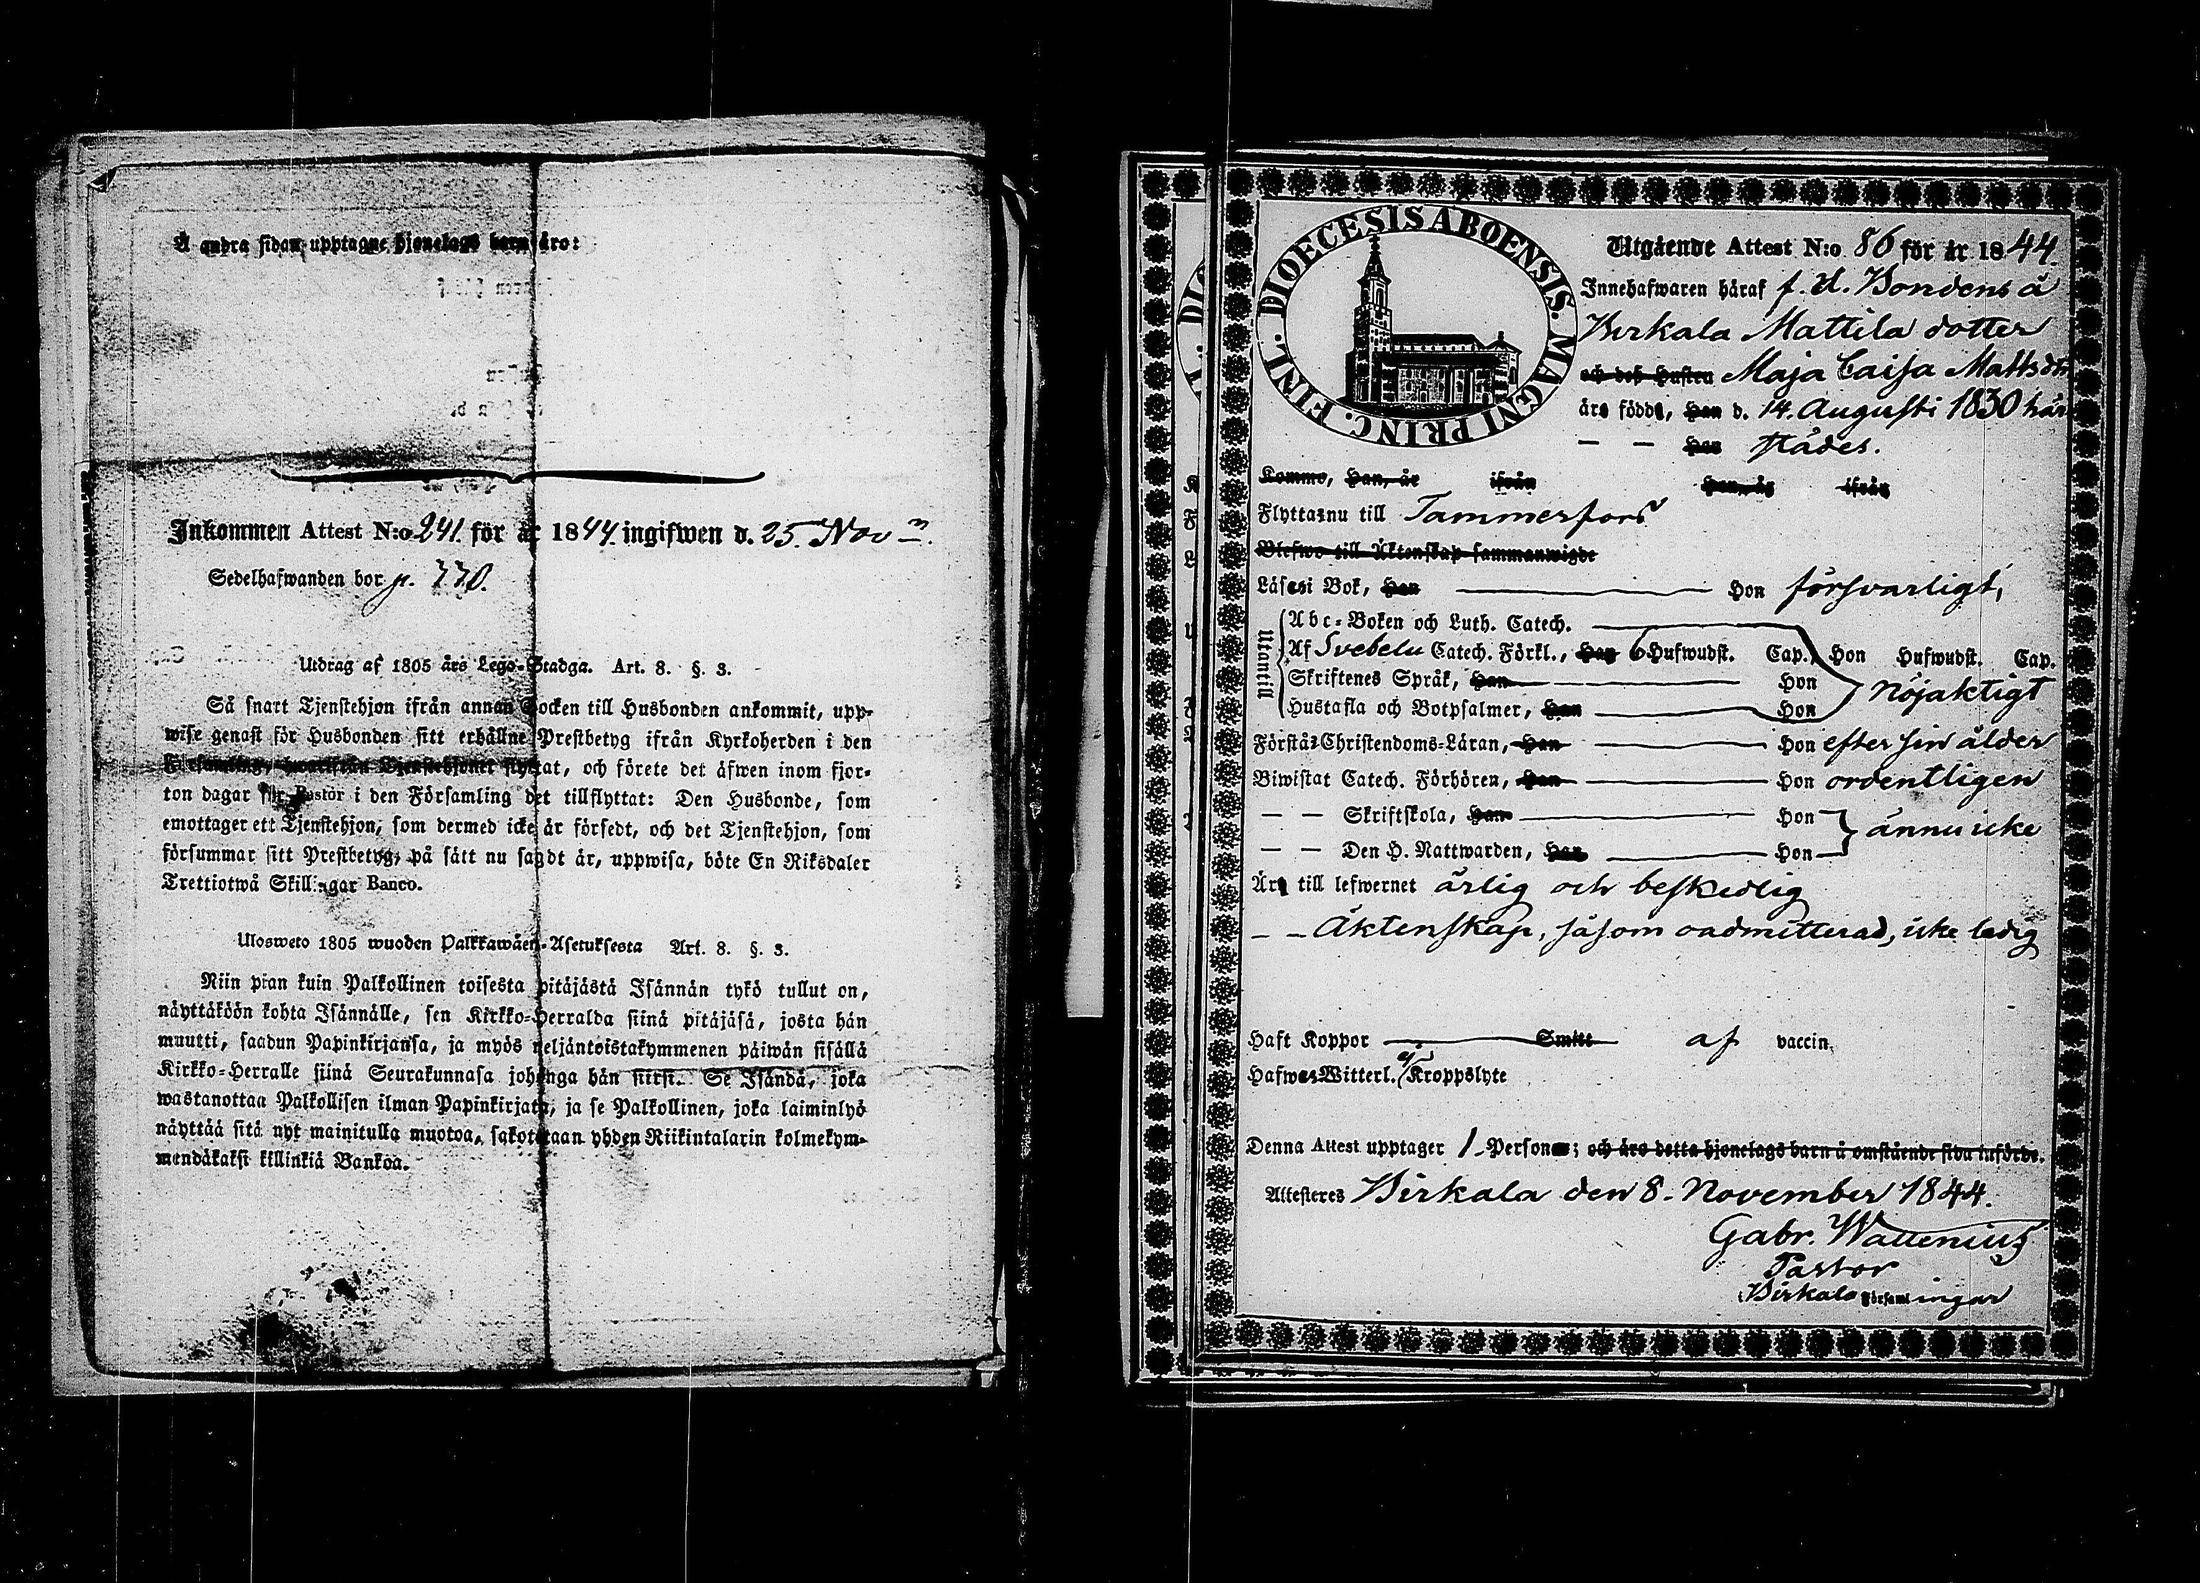 Å andra sidan upptagne hjonelags barn äro:
Inkommen Attest N:o 241 för år 1844 ingifwen d. 25. Nov
Sedelhafwanden bor p. 770.
Utdrag af 1805 års Lego-Stadga. Art. 8. §. 3.
Så snart Tjenstehjon ifrån annan Socken till Husbonden ankommit, upp-
wise genast för Husbonden sitt erhållne Prestbetyg ifrån Kyrkoherden i den
Församling, hwarifrån Tjenstehjonet flyttat, och förete det äfwen inom fjor-
ton dagar för Pastor i den Församling det tillflyttat: Den Husbonde, som
emottager ett Tjenstehjon, som dermed icke är försedt, och det Tjenstehjon, som
försummar sitt Prestbetyg, på sätt nu sagdt är, uppwisa, böte En Riksdaler
Trettiotwå Skillingar Banco.
Ulosweto 1805 wuoden Palkkawäen-Asetuksesta Art. 8. §. 3.
Niin pian kuin Palkollinen toisesta pitäjästä Isännän tykö tullut on,
näyttäköön kohta Isännälle, sen Kirkko-Herralda siinä pitäjäsä, josta hän
muutti, saadun Papinkirjansa, ja myös neljäntoistakymmenen päiwän sisällä
Kirkko-Herralle siinä Seurakunnasa johonga hän siirsi. Se Isändä, joka
wastanottaa Palkollisen ilman Papinkirjata, ja se Palkollinen, joka laiminlyö
näyttää sitä nyt mainitulla muotoa, sakotetaan yhden Riikintalarin kolmekym-
mendäkaksi killinkiä Bankoa.
DIOECESIS ABOENSIS. MAGNI PRINC. FINL.
Utgående Attest N:o 86 för år 1844
Innehafwaren häraf f. d. Bondens å
Birkala Mattila dotter
och deß Hustru Maja Caisa Mattsdr
äro födde, Han d. 14. Augusti 1830 här
— — Hon städes.
Komme, Han, år ifrån Hon, år ifrån
Flytta nu till Tammerfors
Blefwo till Äktenskap sammanwigde
Läse i Bok, Han — Hon försvarligt,
Utantill
Abc-Boken och Luth. Catech.
Af Svebelii Catech. Förkl., Han 6 Hufwudst. Cap., Hon Hufwudst. Cap.
Skriftenes Språk, Han — Hon nöjaktigt
Hustafla och Botpsalmer, Han — Hon
Förstå Christendoms-Läran, Han — Hon efter sin ålder
Biwistat Catech. Förhören, Han — Hon ordentligen
— — Skriftskola, Han — Hon ännu icke
— — Den H. Nattwarden, Han — Hon
Äro till lefwernet ärlig och beskedlig
— — Äktenskap, såsom oadmitterad, icke ledig
Haft Koppor — Smitt af vaccin.
Hafwa Witterl. ej Kroppslyte
Denna Attest upptager 1 Personer; och äro detta hjonelags barn å omstående sida införde.
Attesteres Birkala den 8. November 1844.
Gabr. Wattenius
Pastor
i Birkala Församlingar